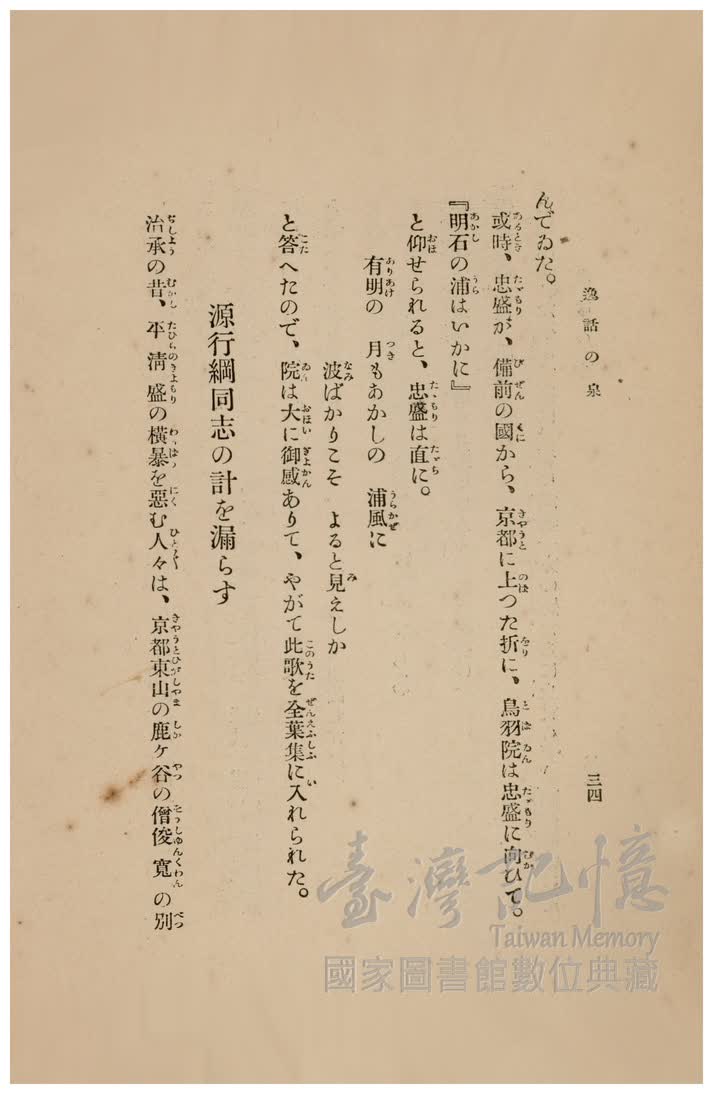 逸話の泉
三四
んでゐた。
或時、忠盛が、備前の國から、京都に上つた折に、鳥羽院は忠盛に向ひて。
『明石の浦はいかに』
と仰せられると、忠盛は直に。
有明の　月もあかしの　浦風に
波ばかりこそ　よると見えしか
と答へたので、院は大に御感ありて、やがて此歌を全葉集に入れられた。
源行綱同志の計を漏らす
治承の昔、平清盛の横暴を惡む人々は、京都東山の鹿ヶ谷の僧俊寬の別
臺灣記憶
Taiwan Memory
國家圖書館數位典藏